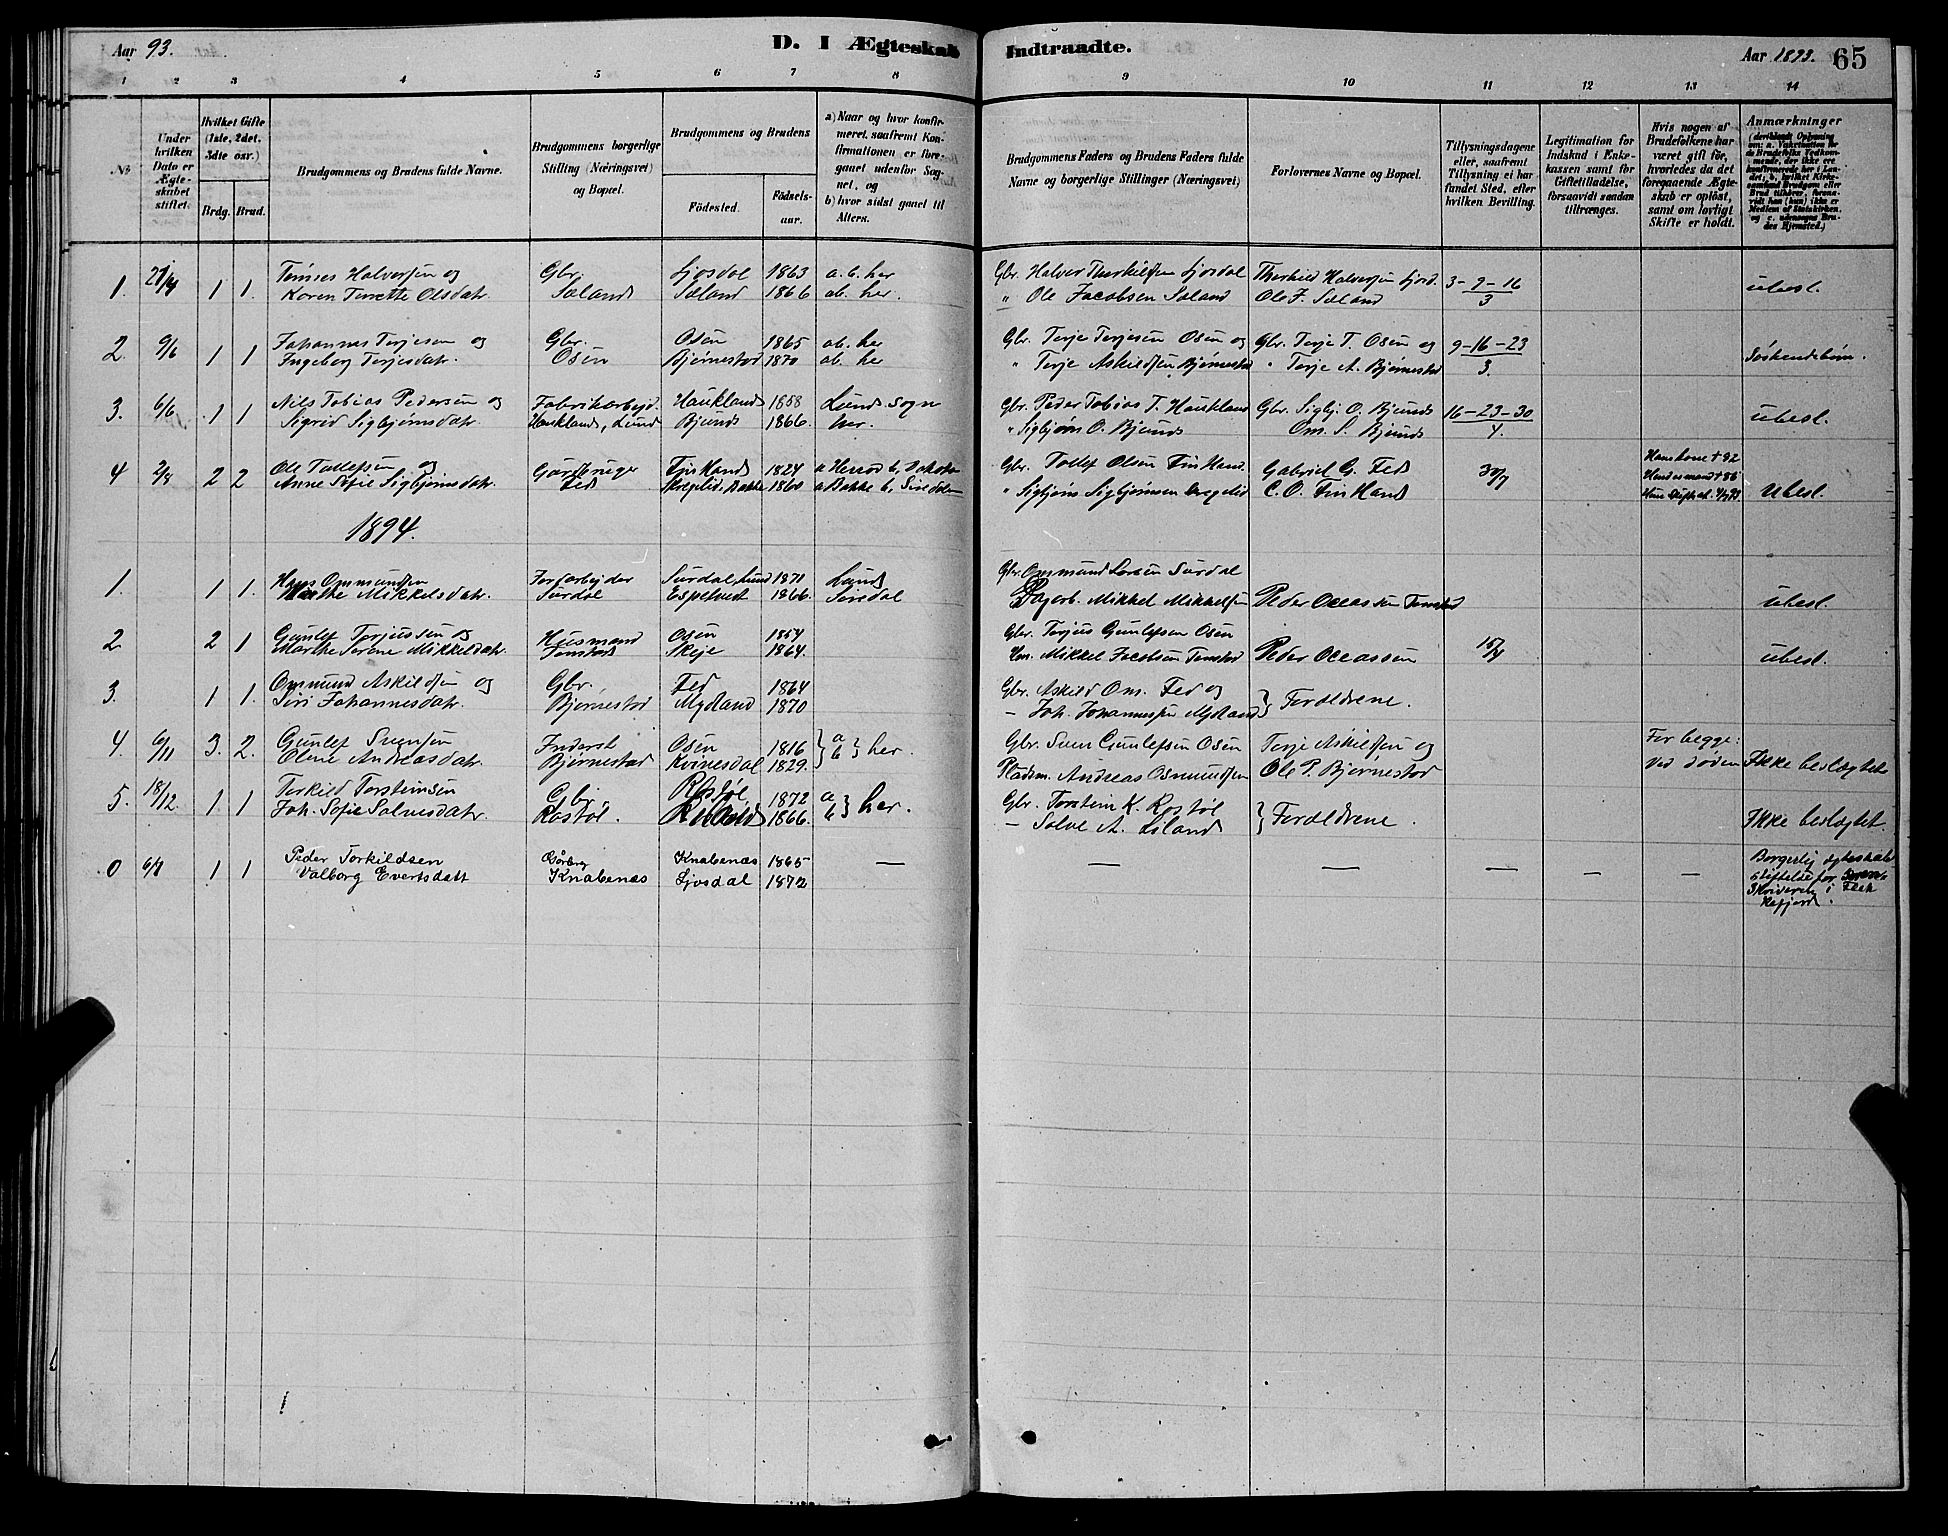 Aar 93.
D. I Ægteskab Indtraadte.
Aar 1893. 65
1 2 3 4 5 6 7 8 9 10 11 12 13 14
No
Under hvilken Dato er Ægteskabet stiftet.
Hvilket Gifte (1ste, 2det, 3die osv.)
Brdg. Brud.
Brudgommens og Brudens fulde Navne.
Brudgommens borgerlige Stilling (Næringsvei) og Bopæl.
Brudgommens og Brudens
Födested.
Födsels-aar.
a) Naar og hvor konfirmeret, saafremt Konfirmationen er foregaaet udenfor Sognet, og
b) hvor sidst gaaet til Alters.
Brudgommens Faders og Brudens Faders fulde Navne og borgerlige Stillinger (Næringsvei)
Forlovernes Navne og Bopæl.
Tillysningsdagene eller, saafremt Tillysning ei har fundet Sted, efter hvilken Bevilling.
Legitimation for Indskud i Enkekassen samt for Giftetilladelse, forsaavidt saadan tiltrænges.
Hvis nogen af Brudefolkene har været gift för, hvorledes da det foregaaende Ægteskab er oplöst, samt om lovligt Skifte er holdt.
Anmærkninger
1. 21/4 1 1. Tønnes Halvorsen og Gbr. Ljosdal 1863 a. b. her Gbr. Halvor Therkildsen Ljosdal Therkild Halvorsen Ljosd. 3-9-16
Karen Tonette Olsdatr. Saland Saland 1866 ab. her. " Ole Jacobsen Saland Ole J. Saland 3 ubesl.
2. 9/6 1 1 Johannes Terjesen og Gbr. Osen 1865 ab. her Gbr. Terje Terjesen Osen og Gbr. Terje T. Osen og 9-16-23
Ingeborg Terjesdatr. Osen Bjørnestad 1870 ab. he " Terje Askildsen Bjørnestad " Terje A. Bjørnestad 3. Søskendebørn.
3. 6/6 1 1 Nils Tobias Pedersen og Fabrikarbejd. Haukland 1858 Lunds Sogn Gbr. Peder Tobias T. Haukland Gbr. Sigbj. O. Bjunds 16-23-30
Sigrid Sigbjørnsdatr. Haukland, Lund Bjunds 1866. her. " Sigbjørn O. Bjunds Om. S. Bjunds 4. ubesl.
4 2/8 2 2 Ole Tollefsen og Gårdbruger Finsland 1824 Gbr. Tollef Olsen Finsland Gabriel G. Fed 30/7 Hans kone + 92
Anne Sofie Sigbjørnsdatr. Fed Skregelid, Bakke 1860 a Bakke b, Siredalen " Sigbjørn Sigbjørnsen Skregelid C. O. Finsland Hendes mand + 86
Ubesl.
1894.
1. 1 1. Hans Ommundsen Jordarbejder Surdal, Lund 1871 Lund Gbr. Ommund Larsen Surdal
Marthe Mikkelsdatr. Surdal Espetvedt 1866. Siredal Dagarb. Mikkel Mikkelsen Peder Oleassen Tonstad ubesl.
2 2 1 Gunlef Terjussen og Husmand Osen 1854 Gbr. Terjus Gunlefsen Osen 15/4
Marthe Serene Mikkelsdatr. Tonstad Skeje 1864. Hm. Mikkel Jacobsen Tonstad Peder Oleassen ubesl.
3. 1 1. Ommund Askildsen og Gbr. Fed 1864 Gbr. Askild Om. Fed og
Siri Johannesdatr. Bjørnestad Mydland 1870 - Joh. Johannessen Mydland } Forældrene.
4. 6/11 3. 2. Gunlef Svensen Inderst Osen 1816 a b } her. Gbr. Sven Gunlefsen Osen Terje Askildsen og For begge:
Olene Andreasdatr. Bjørnestad Kvinesdal 1829. Pladsm. Andreas Osmundsen Ole P. Bjørnestad Ved døden Ikke beslægtet
5. 18/12 1 1 Torkild Torsteinsen Gbr. Rostøl 1872 a b } her. Gbr. Torstein K. Rostøl
Joh. Sofie Salvesdatr. Rostøl. 1866. - Salve A. Liland } Forældrene. Ikke beslægtet.
0 6/1 1 1 Peder Torkildsen Gårbrg Knabenæs 1865 — — — — — — Borgerlig ægteskab
Valborg Evertsdatt Knabenæs Ljosdal 1872 stiftelse for
Skriveren i Flek
kefjord.